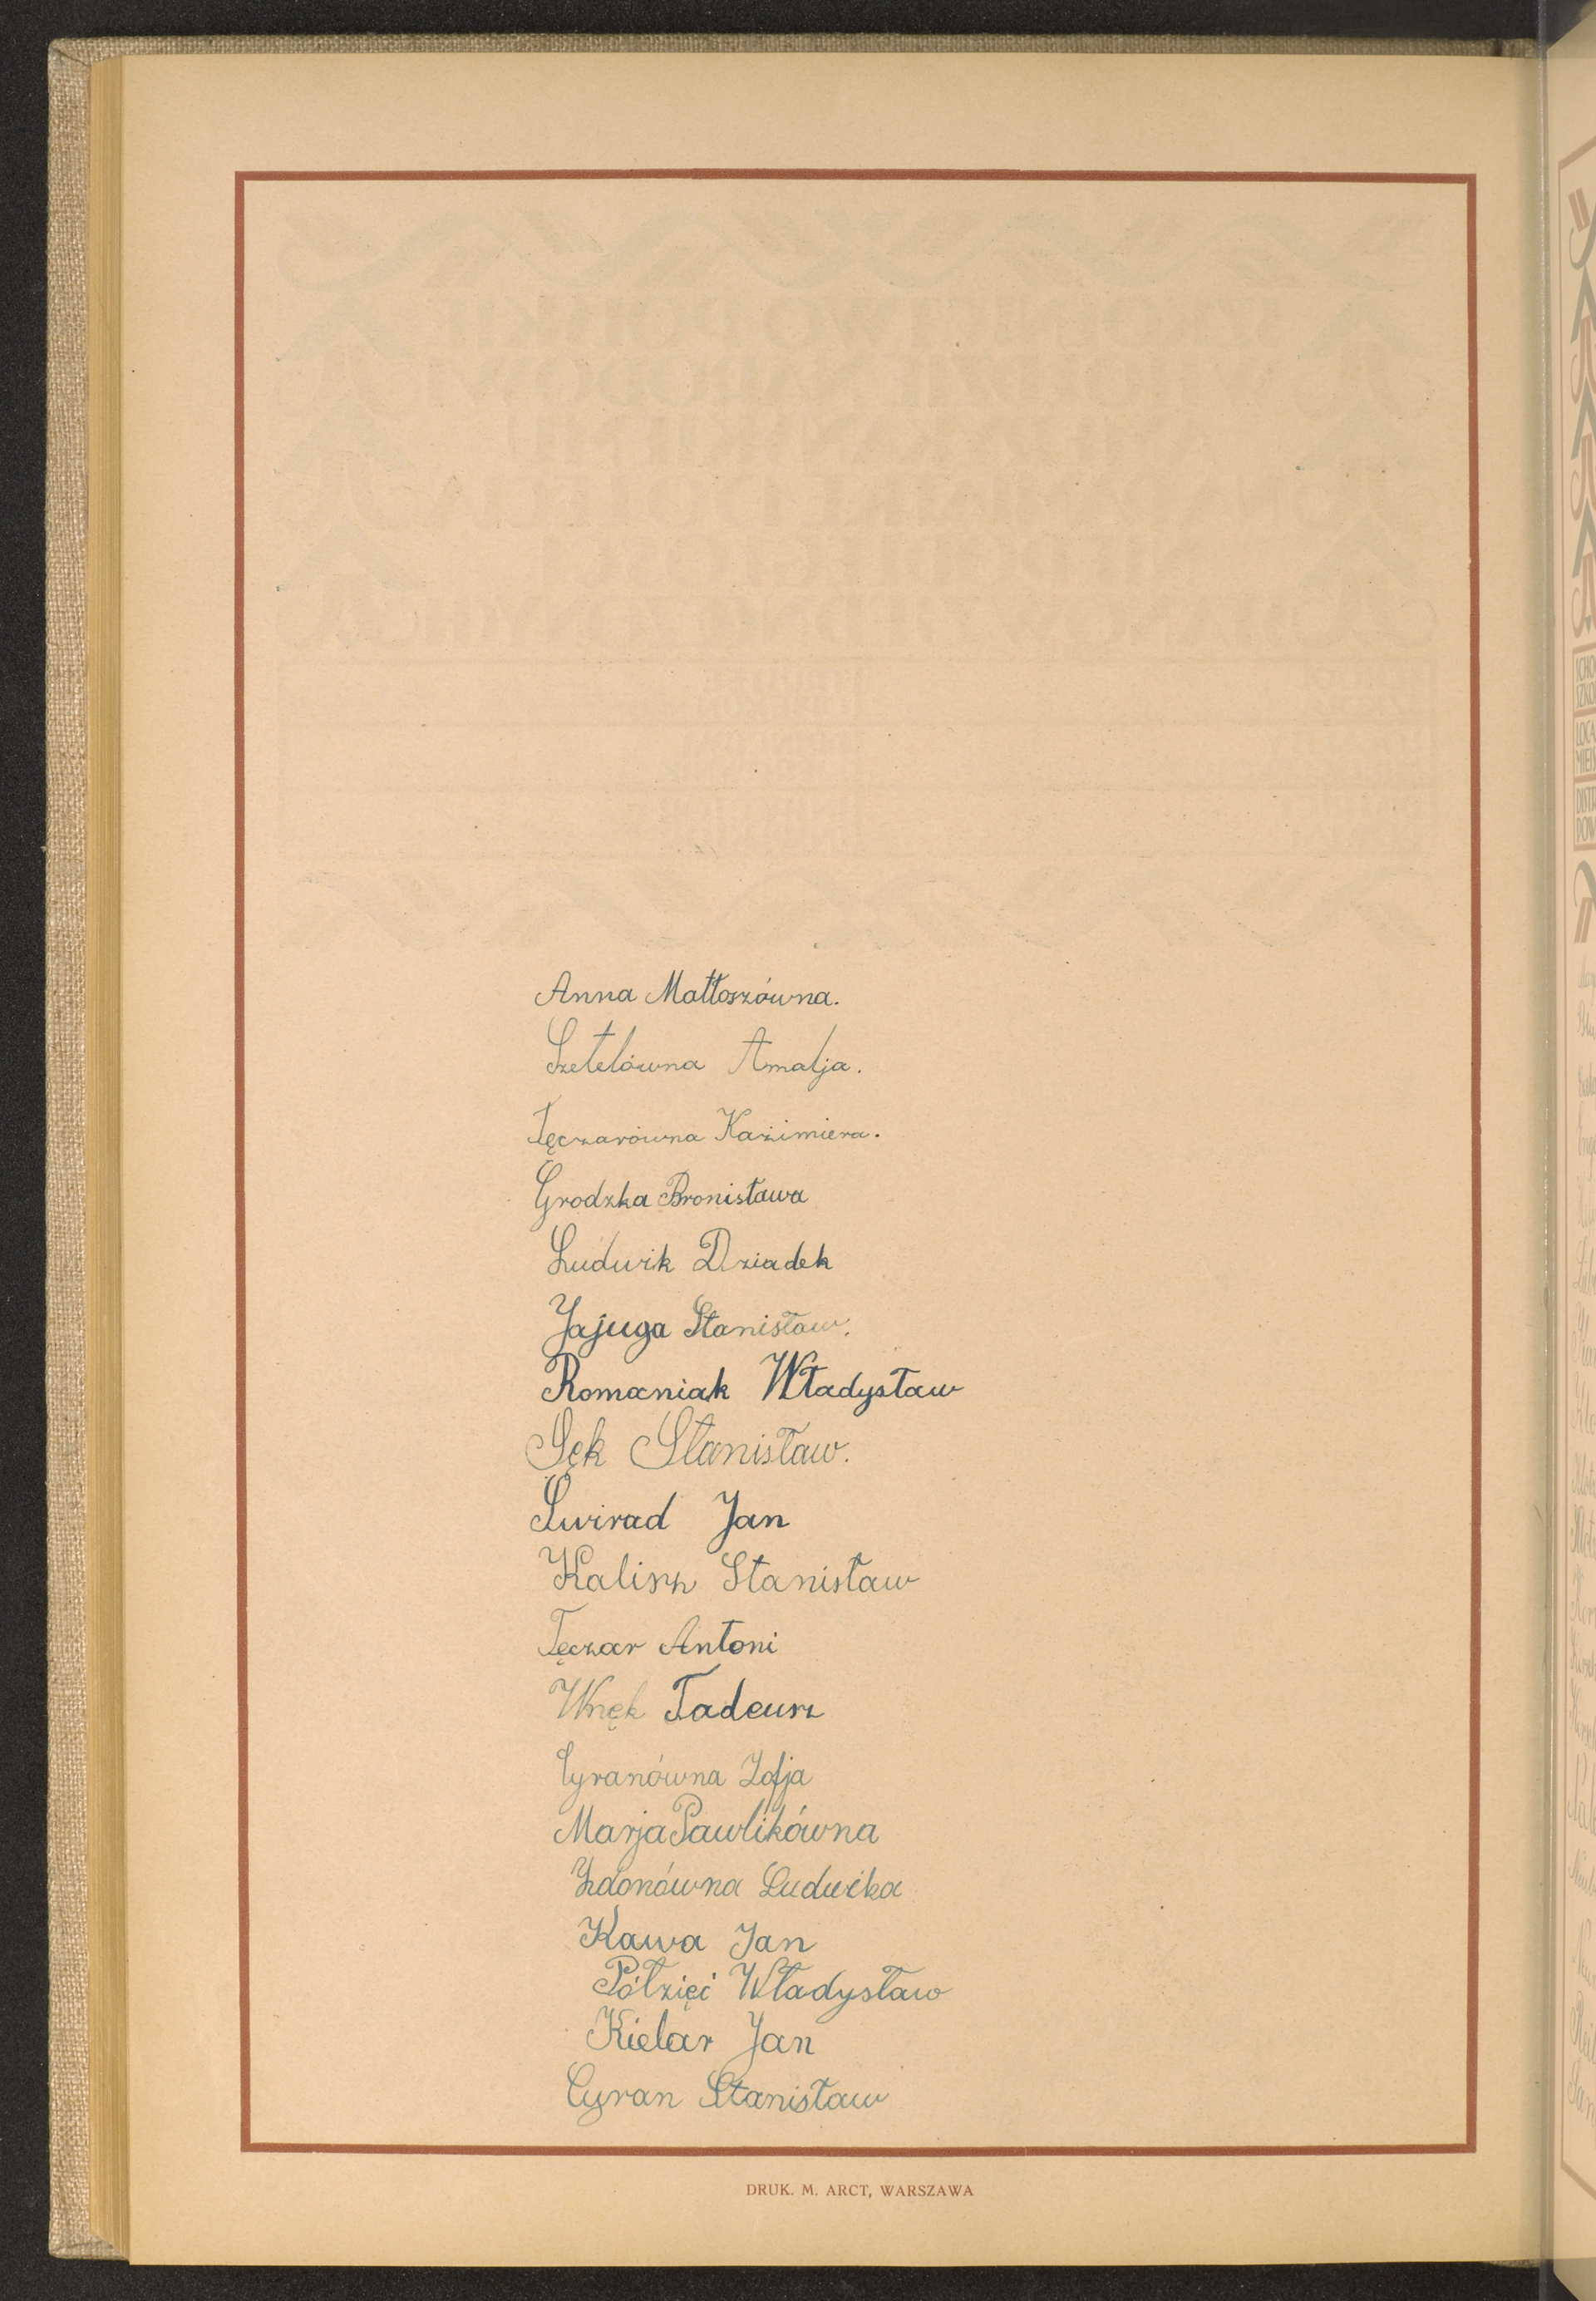 Anna Mattoszówna.
Szetelówna Amalja.
Tęczarówna Kazimiera.
Grodzka Bronisława
Ludwik Dziadek
Jajuga Stanisław.
Romaniak Władysław
Sęk Stanisław.
Świrad Jan
Kalisz Stanisław
Tęczar Antoni
Wnęk Tadeusz
Cyranówna Zofja
Marja Pawlikówna
Zdonówna Ludwika
Kawa Jan
Półzięć Władysław
Kielar Jan
Cyran Stanisław
DRUK. M. ARCT, WARSZAWA